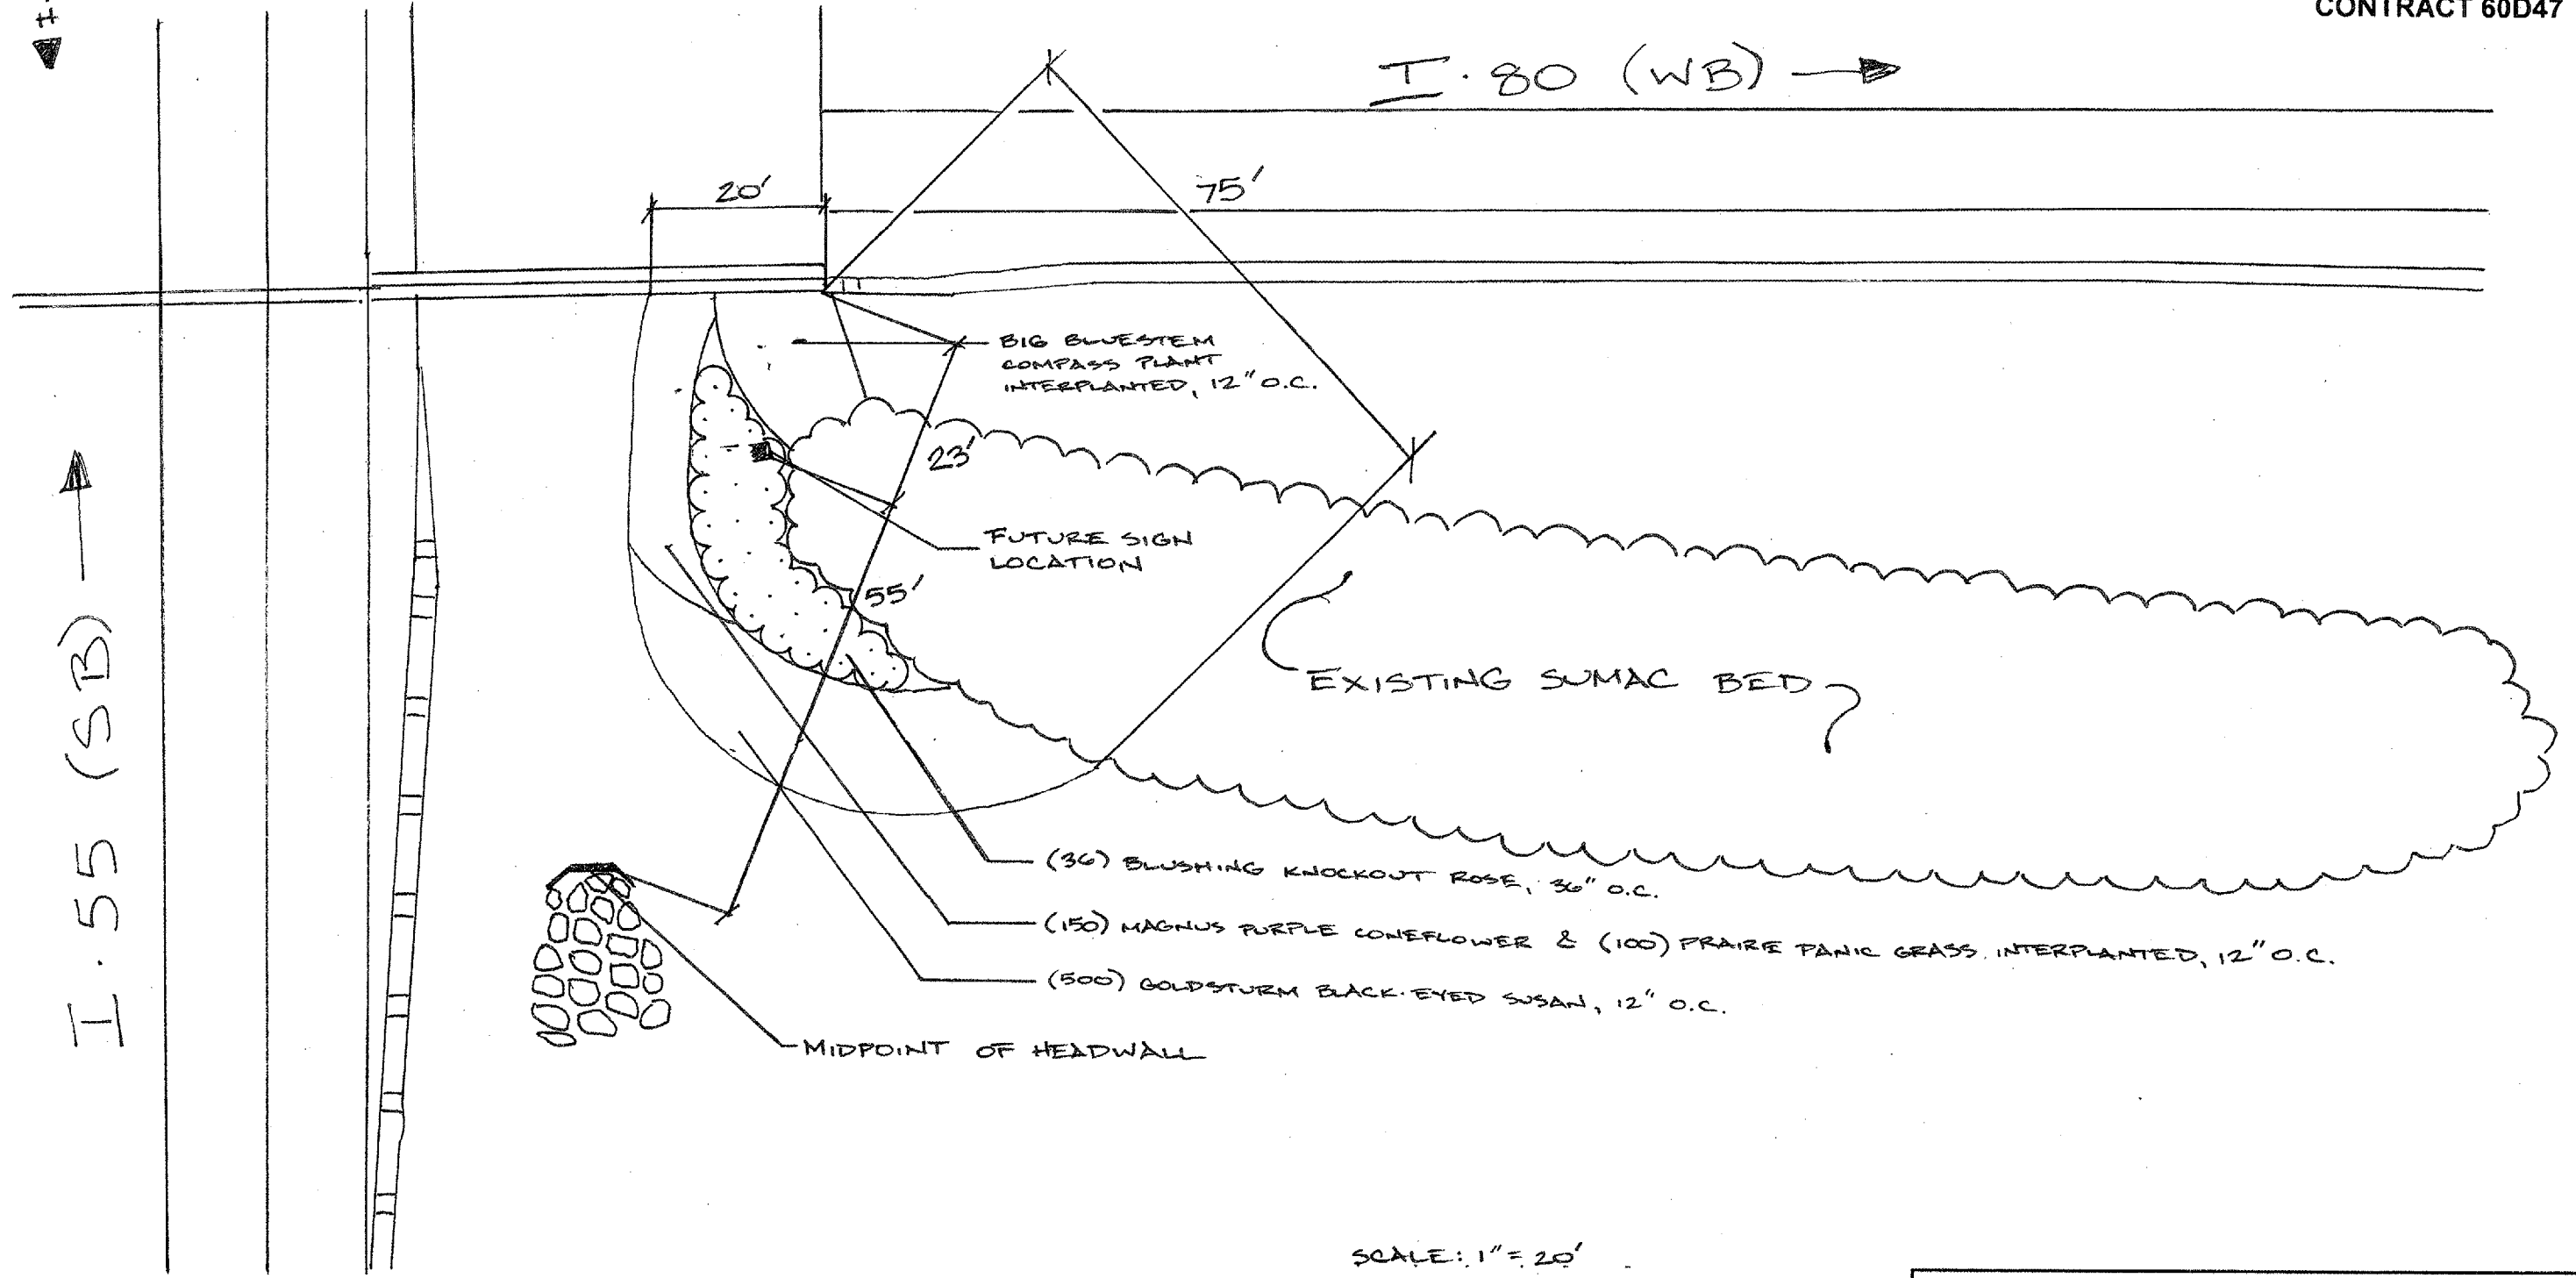 CONTRACT 60D47
I-80 (WB)
20'
75'
BIG BLUESTEM
COMPASS PLANT
INTERPLANTED, 12" O.C.
23'
FUTURE SIGN
LOCATION
55'
EXISTING SUMAC BED
I-55 (SB)
(36) BLUSHING KNOCKOUT ROSE, 36" O.C.
(150) MAGNUS PURPLE CONEFLOWER & (100) PRAIRE PANIC GRASS INTERPLANTED, 12" O.C.
(500) GOLDSTURM BLACK-EYED SUSAN, 12" O.C.
MIDPOINT OF HEADWALL
SCALE: 1" = 20'